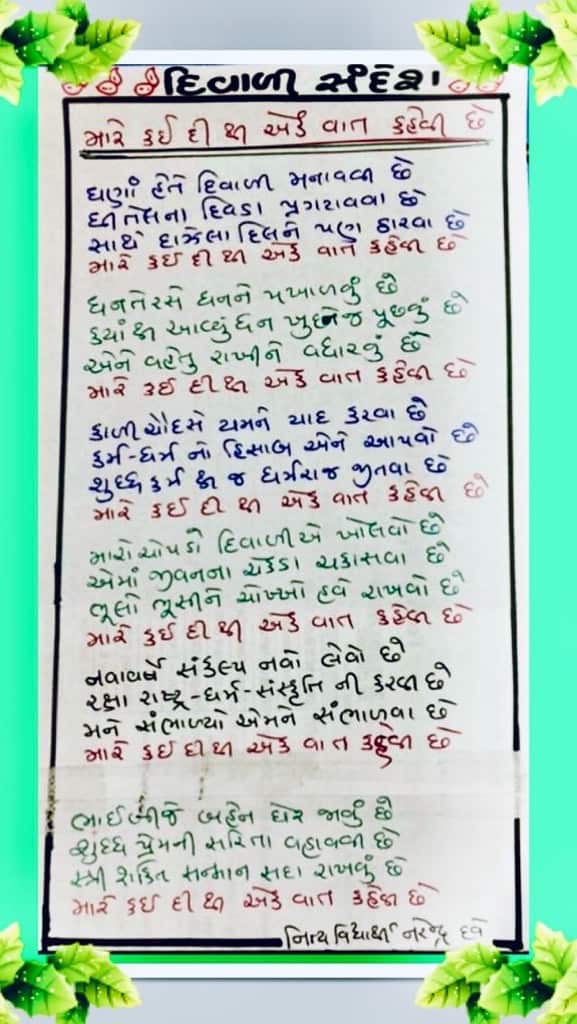 દિવાળી સંદેશ
મારે કઈ દી થી એક વાત કહેવી છે
ઘણાં હેતે દિવાળી મનાવવી છે
ઘી તેલના દિવડા પ્રગટાવવા છે
સાથે દાઝેલા દિલને પણ ઠારવા છે
મારે કઈ દી થી એક વાત કહેવી છે
ધનતેરસે ધનને પખાળવું છે
ક્યાં થી આવ્યું ધન ખુદને જ પૂછવું છે
એને વહેતુ રાખીને વધારવું છે
મારે કઈ દી થી એક વાત કહેવી છે
કાળી ચૌદસે યમને યાદ કરવા છે
કર્મ-ધર્મ નો હિસાબ એને આપવો છે
શુદ્ધ કર્મ થી જ ધર્મરાજ જીતવા છે
મારે કઈ દી થી એક વાત કહેવી છે
મારો ચોપડો દિવાળી એ ખોલવો છે
એમાં જીવનના ચેકડા ચકાસવા છે
ભૂલો ભૂસીને ચોખ્ખો હવે રાખવો છે
મારે કઈ દી થી એક વાત કહેવી છે
નવાવર્ષે સંકલ્પ નવો લેવો છે
રક્ષા રાષ્ટ્ર-ધર્મ-સંસ્કૃતિ ની કરવી છે
મને સંભાળ્યો એમને સંભાળવા છે
મારે કઈ દી થી એક વાત કહેવી છે
ભાઈબીજે બહેન ઘેર જાવું છે
શુદ્ધ પ્રેમની સરિતા વહાવવી છે
સ્ત્રી શક્તિ સન્માન સદા રાખવું છે
મારે કઈ દી થી એક વાત કહેવી છે
નિત્ય વિદ્યાર્થી નરેન્દ્ર દવે